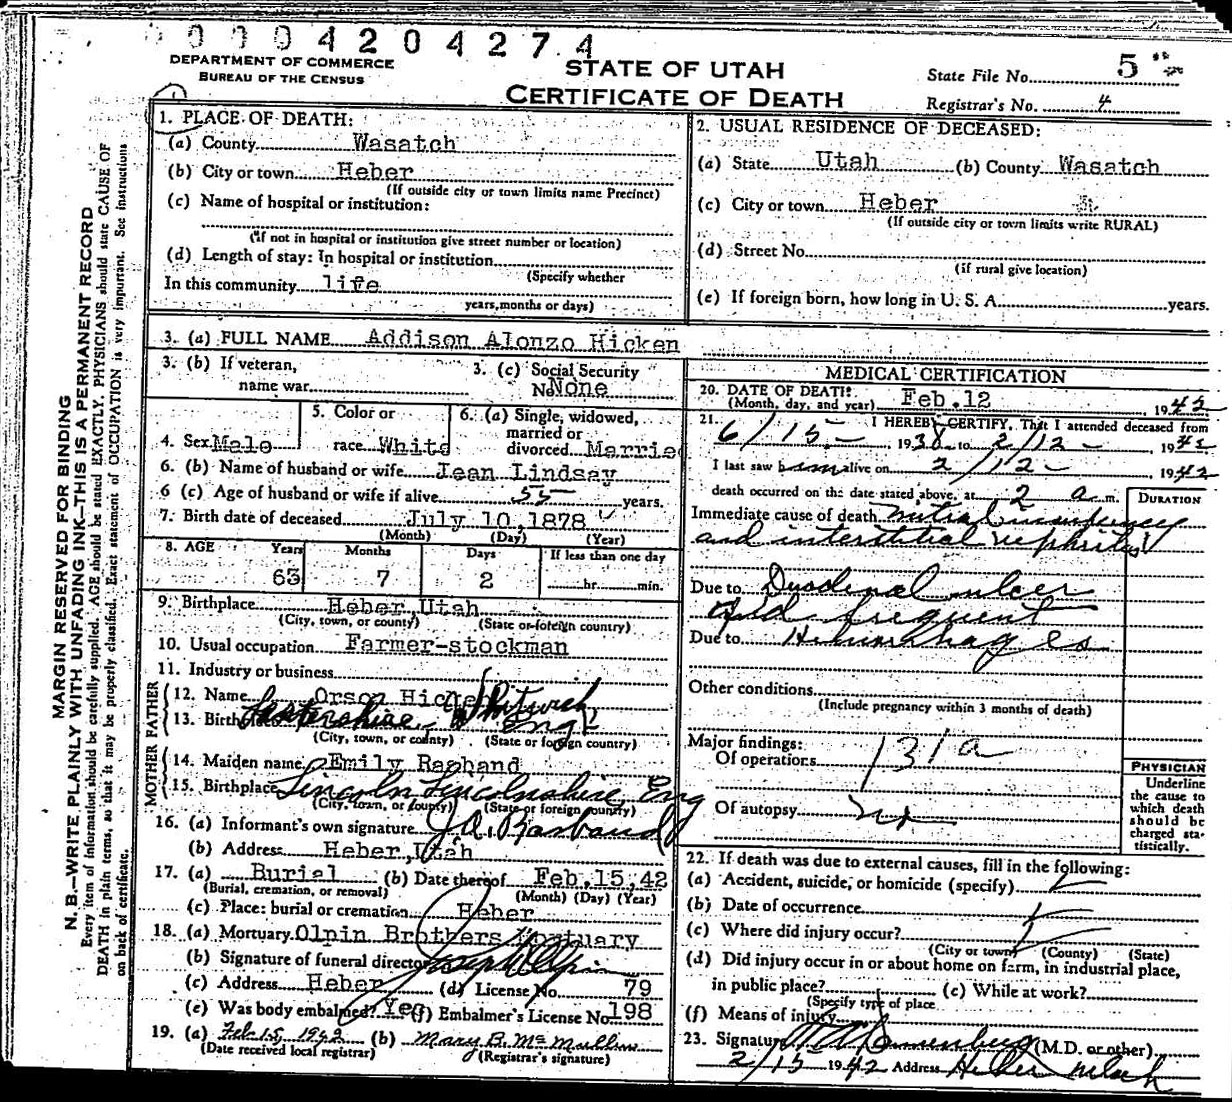 0004204274
DEPARTMENT OF COMMERCE
BUREAU OF THE CENSUS
STATE OF UTAH
CERTIFICATE OF DEATH
State File No. 5
Registrar's No. 4
MARGIN RESERVED FOR BINDING
N. B.—WRITE PLAINLY WITH UNFADING INK—THIS IS A PERMANENT RECORD
Every item of information should be carefully supplied. AGE should be stated EXACTLY. PHYSICIANS should state CAUSE OF
DEATH in plain terms, so that it may be properly classified. Exact statement of OCCUPATION is very important. See instructions
on back of certificate.
1. PLACE OF DEATH:
(a) County Wasatch
(b) City or town Heber
(If outside city or town limits name Precinct)
(c) Name of hospital or institution:
(If not in hospital or institution give street number or location)
(d) Length of stay: In hospital or institution
(Specify whether
In this community life
years, months or days)
2. USUAL RESIDENCE OF DECEASED:
(a) State Utah (b) County Wasatch
(c) City or town Heber
(If outside city or town limits write RURAL)
(d) Street No.
(if rural give location)
(e) If foreign born, how long in U. S. A. years.
3. (a) FULL NAME Addison Alonzo Hicken
3. (b) If veteran,
name war
3. (c) Social Security
No. None
4. Sex Male
5. Color or
race White
6. (a) Single, widowed,
married or
divorced Marrie
6. (b) Name of husband or wife Jean Lindsay
6 (c) Age of husband or wife if alive 55 years.
7. Birth date of deceased July 10, 1878
(Month) (Day) (Year)
8. AGE Years Months Days If less than one day
63 7 2 hr. min.
9. Birthplace Heber, Utah
(City, town, or county) (State or foreign country)
10. Usual occupation Farmer-stockman
11. Industry or business
FATHER
12. Name Orson Hicken
13. Birthplace Eng
(City, town, or county) (State or foreign country)
MOTHER
14. Maiden name Emily Rasband
15. Birthplace Lincoln Lincolnshire, Eng
(City, town, or county) (State or foreign country)
16. (a) Informant's own signature J. A. Rasband
(b) Address Heber, Utah
17. (a) Burial (b) Date thereof Feb. 15, 42
(Burial, cremation, or removal) (Month) (Day) (Year)
(c) Place: burial or cremation Heber
18. (a) Mortuary Olpin Brothers Mortuary
(b) Signature of funeral director Joseph Olpin
(c) Address Heber (d) License No. 79
(e) Was body embalmed? Yes (f) Embalmer's License No. 198
19. (a) Feb 15, 1942 (b) Mary B. McMullin
(Date received local registrar) (Registrar's signature)
MEDICAL CERTIFICATION
20. DATE OF DEATH: Feb. 12, 1942
(Month, day, and year)
21. I HEREBY CERTIFY, That I attended deceased from
6/15- 1938 to 2/12- , 1942
I last saw him alive on 2/12- 1942
death occurred on the date stated above, at 2 a m.
DURATION
Immediate cause of death Mitral
and interstitial nephritis
Due to Duodenal ulcer
and frequent
Due to Hemorrhages
Other conditions
(Include pregnancy within 3 months of death)
Major findings:
Of operations 131a
Of autopsy
PHYSICIAN
Underline
the cause to
which death
should be
charged sta-
tistically.
22. If death was due to external causes, fill in the following:
(a) Accident, suicide, or homicide (specify)
(b) Date of occurrence
(c) Where did injury occur?
(City or town) (County) (State)
(d) Did injury occur in or about home on farm, in industrial place,
in public place? (c) While at work?
(Specify type of place
(f) Means of injury
23. Signature (M.D. or other)
2/15 1942 Address Heber Utah